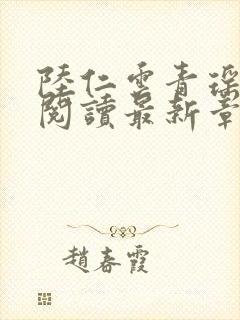 陸仁雲青瑶
閱讀最新章
趙春霞